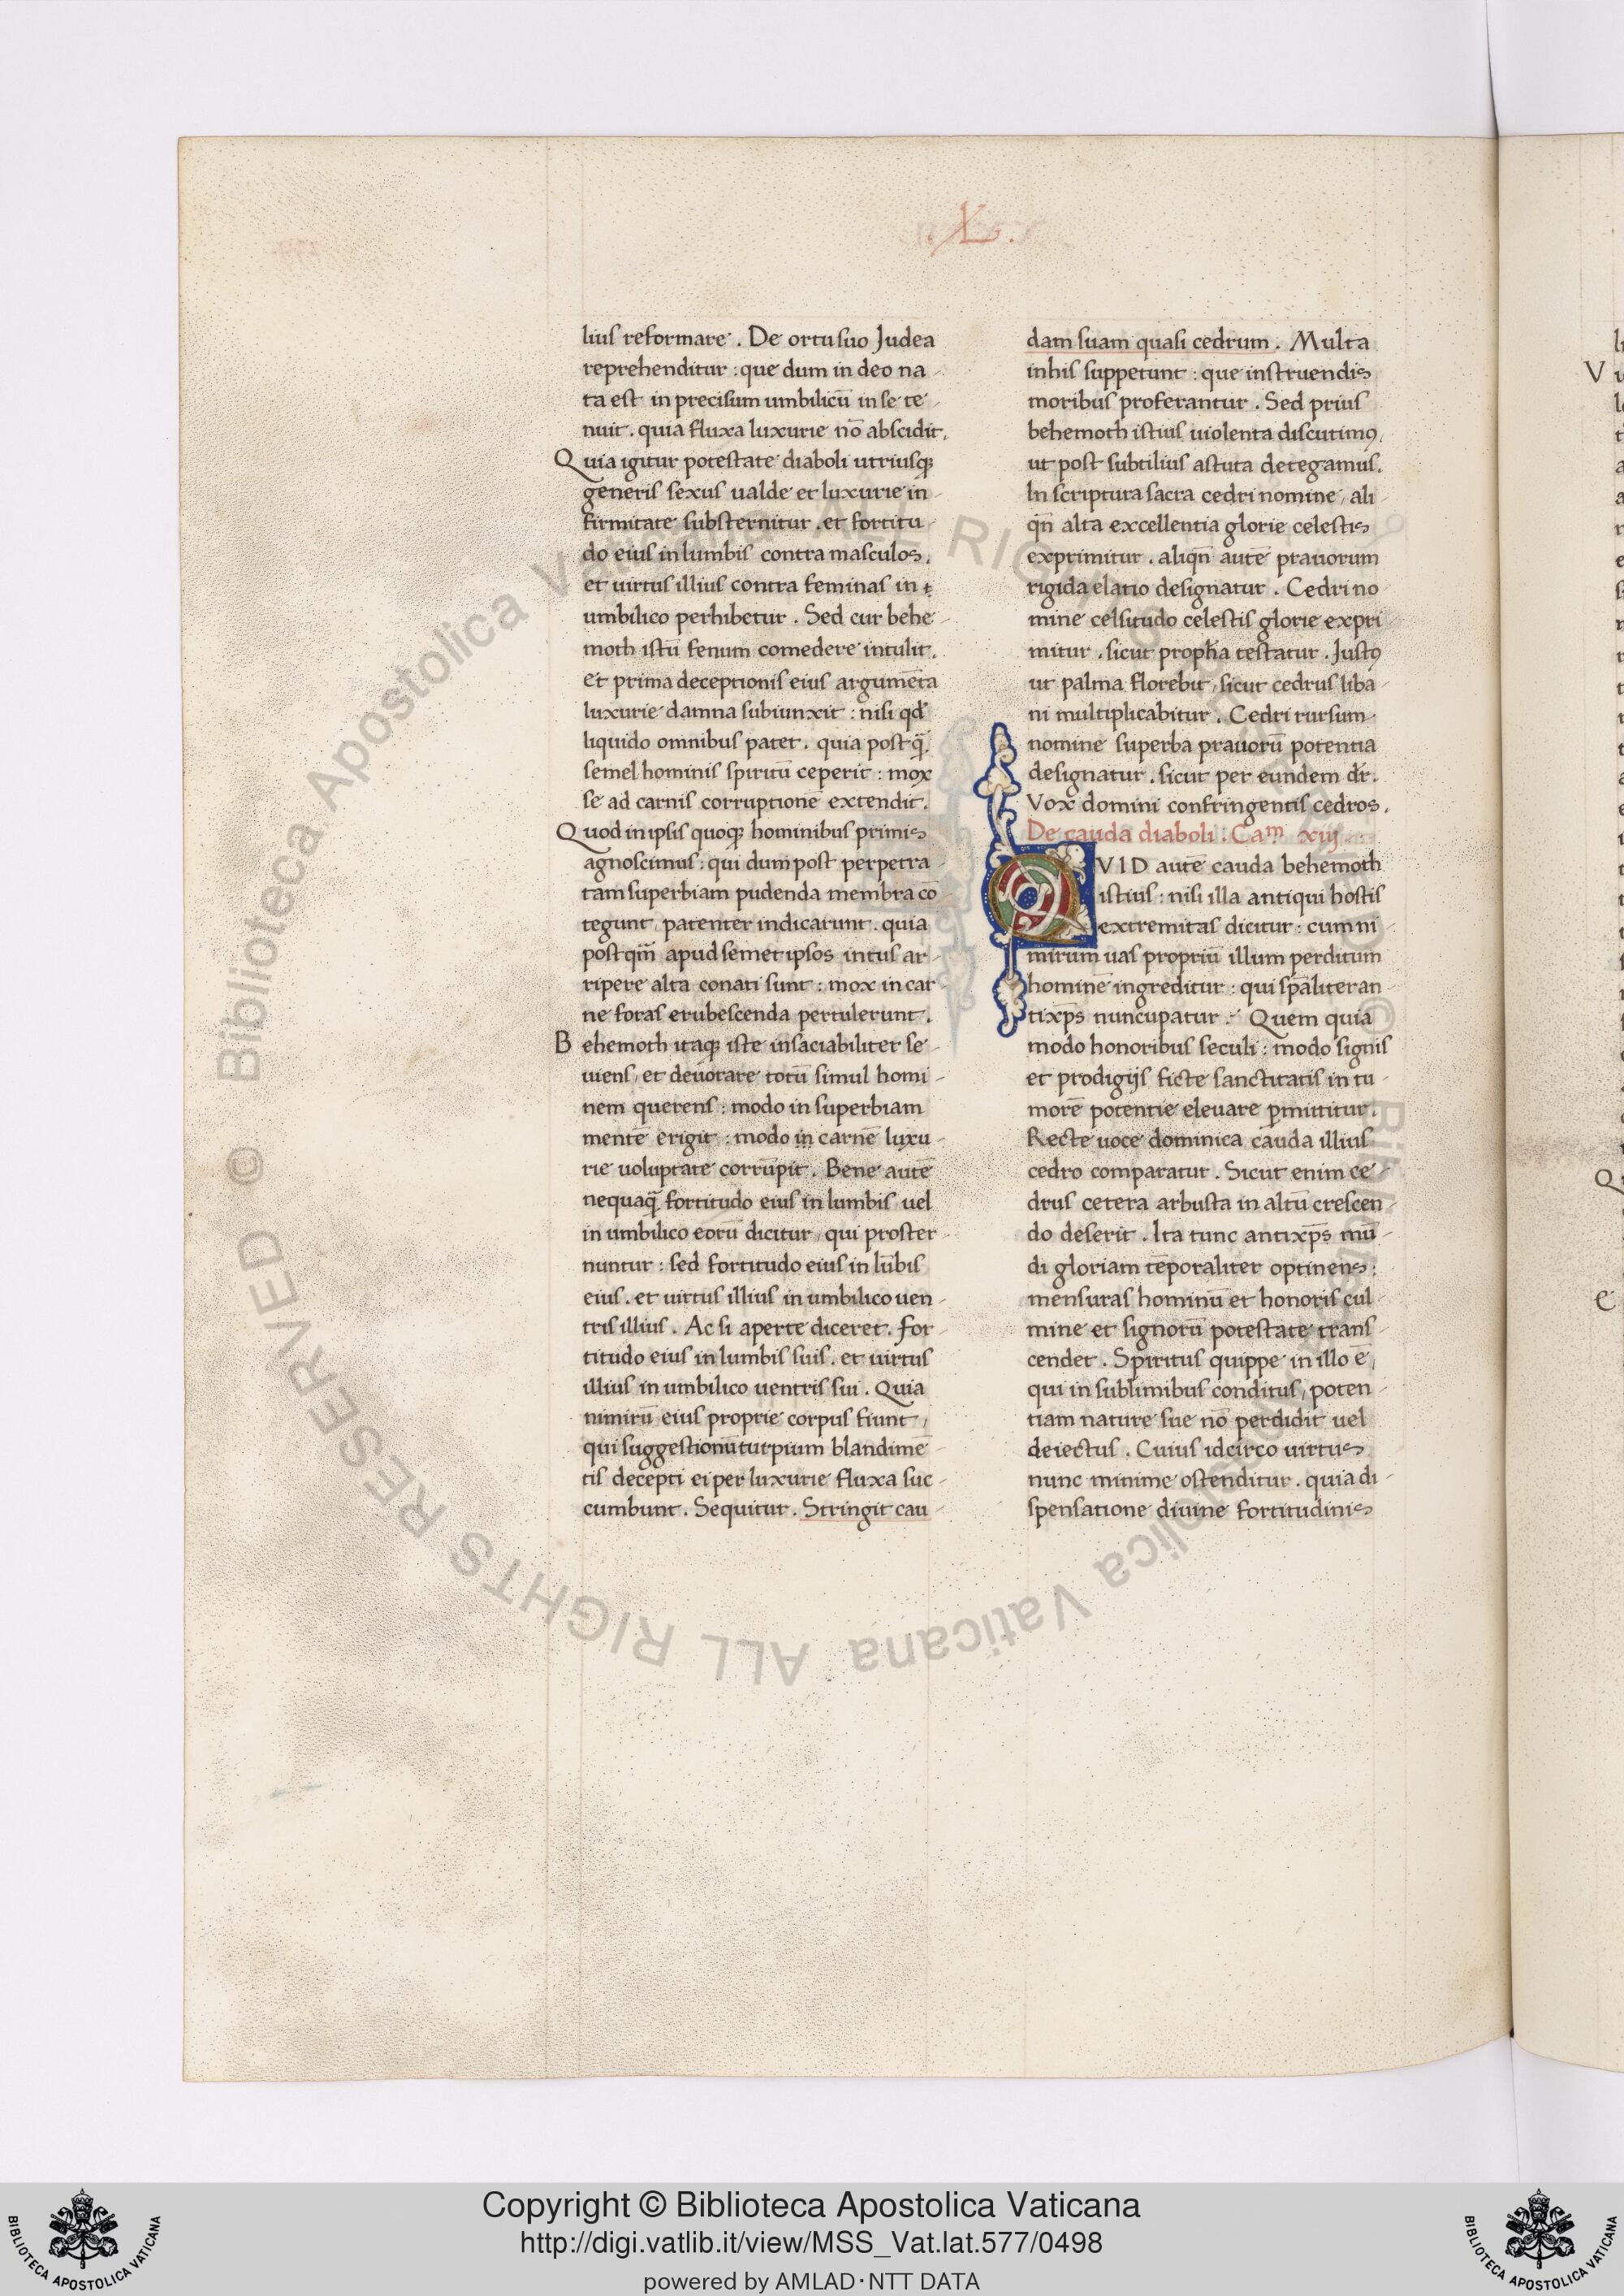 .XL.
lius reformare. De ortu suo Judea
reprehenditur : que dum in deo na-
ta est in precisum umbilicū in se te-
nuit. quia fluxa luxurie nō abscidit.
Quia igitur potestate diaboli utriusqꝫ
generis sexus ualde et luxurie in-
firmitate substernitur. et fortitu-
do eius in lumbis contra masculos.
et uirtus illius contra feminas in
umbilico perhibetur. Sed cur behe-
moth istū fenum comedere intulit.
et prima deceptionis eius argumēta
luxurie damna subiunxit : nisi qđ
liquido omnibus patet. quia postq̄.
semel hominis spiritū ceperit : mox
se ad carnis corruptionē extendit.
Quod in ipsis quoqꝫ hominibus primis
agnoscimus : qui dum post perpetra-
tam superbiam pudenda membra cō-
tegunt, patenter indicarunt. quia
postqm̄ apud semet ipsos intus ar-
ripere alta conati sunt : mox in car-
ne foras erubescenda pertulerunt.
Behemoth itaqꝫ iste insaciabiliter se-
uiens, et deuorare totū simul homi-
nem querens : modo in superbiam
mentē erigit : modo in carnē luxu-
rie uoluptate corrūpit. Bene autē
nequaq̄ fortitudo eius in lumbis uel
in umbilico eorū dicitur, qui proster-
nuntur : sed fortitudo eius in lūbis
eius. et uirtus illius in umbilico uen-
tris illius. Ac si aperte diceret. For-
titudo eius in lumbis suis. et uirtus
illius in umbilico uentris sui. Quia
nimirū eius proprie corpus fiunt,
qui suggestionū turpium blandimē-
tis decepti ei per luxurie fluxa suc-
cumbunt. Sequitur. Stringit cau-
dam suam quasi cedrum. Multa
in his suppetunt : que instruendis
moribus proferantur. Sed prius
behemoth istius uiolenta discutimꝰ,
ut post subtilius astuta detegamus.
In scriptura sacra cedri nomine, ali-
qn̄ alta excellentia glorie celestis
exprimitur. aliqn̄ autē prauorum
rigida elatio designatur. Cedri no-
mine celsitudo celestis glorie expri-
mitur. sicut propħa testatur. Justꝰ
ut palma florebit, sicut cedrus liba-
ni multiplicabitur. Cedri rursum
nomine superba prauorū potentia
designatur. sicut per eundem dr̄.
Vox domini confringentis cedros.
De cauda diaboli. Caᵐ xiij.
QVID autē cauda behemoth
istius : nisi illa antiqui hostis
extremitas dicitur : cum ni-
mirum uas propriū illum perditum
hominē ingreditur : qui sp̄aliter an-
tixp̄s nuncupatur. Quem quia
modo honoribus seculi : modo signis
et prodigijs ficte sanctitatis in tu-
morē potentie eleuare ꝑmittitur.
Recte uoce dominica cauda illius
cedro comparatur. Sicut enim ce-
drus cetera arbusta in altū crescen-
do deserit. Ita tunc antixp̄s mū-
di gloriam tēporaliter optinens :
mensuras hominū et honoris cul-
mine et signorū potestate trans-
cendet. Spiritus quippe in illo ē,
qui in sublimibus conditus, poten-
tiam nature sue nō perdidit uel
deiectus. Cuius idcirco uirtus
nunc minime ostenditur. quia di-
spensatione diuine fortitudinis
© Biblioteca Apostolica Vaticana ALL RIGHTS RESERVED
Copyright © Biblioteca Apostolica Vaticana
http://digi.vatlib.it/view/MSS_Vat.lat.577/0498
powered by AMLAD·NTT DATA
BIBLIOTECA APOSTOLICA VATICANA
BIBLIOTECA APOSTOLICA VATICANA